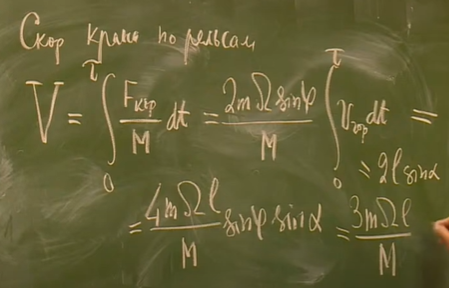 Скор крана по рельсам
V = ∫₀^τ F_кор/M dt = 2mΩ sinφ/M ∫₀^τ v_гор dt =
= 2l sinα
= 4mΩl/M sinφ sinα = 3mΩl/M